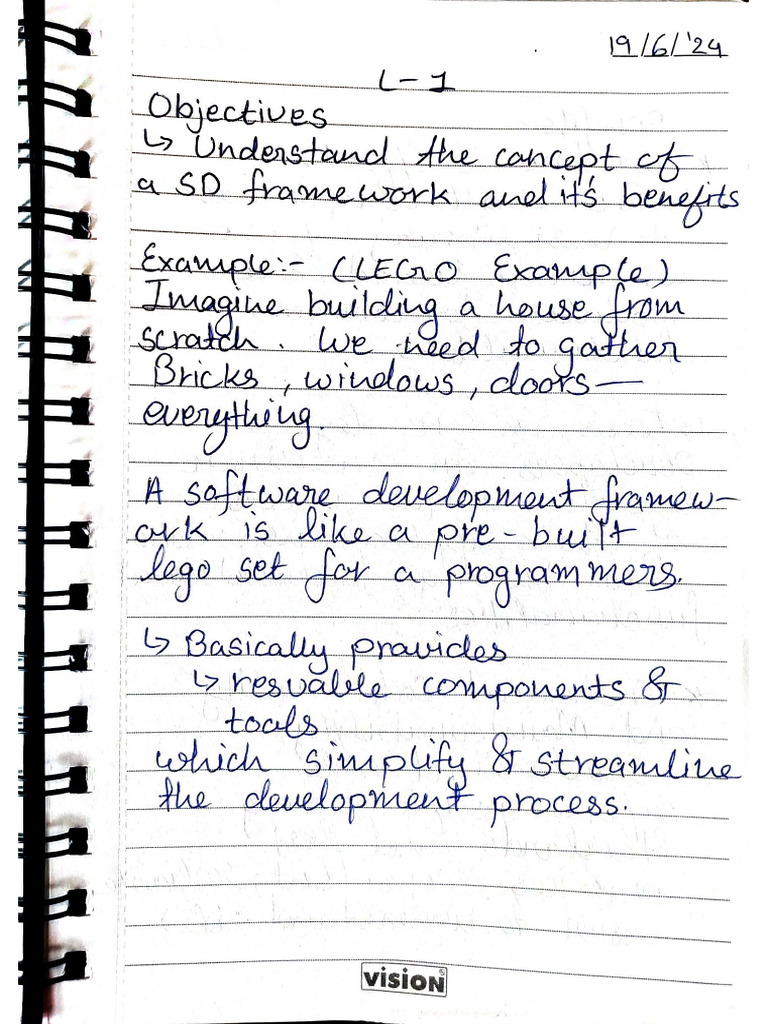 19/6/'24
L-1
Objectives
↳ Understand the concept of
a SD framework and it's benefits
Example:- (LEGO Example)
Imagine building a house from
scratch. We need to gather
Bricks, windows, doors—
everything.
A software development framew-
ork is like a pre-built
lego set for a programmers.
↳ Basically provides
↳ resuable components &
tools
which simplify & streamline
the development process.
vision